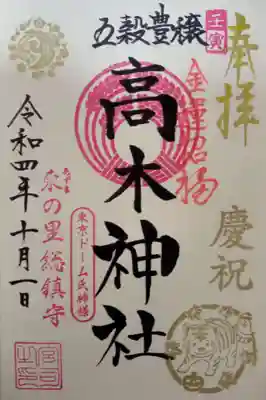 奉拝
慶祝
壬寅
五穀豊穣
金運招福
高木神社
東京ドーム氏神様
の里総鎮守
令和四年十月一日